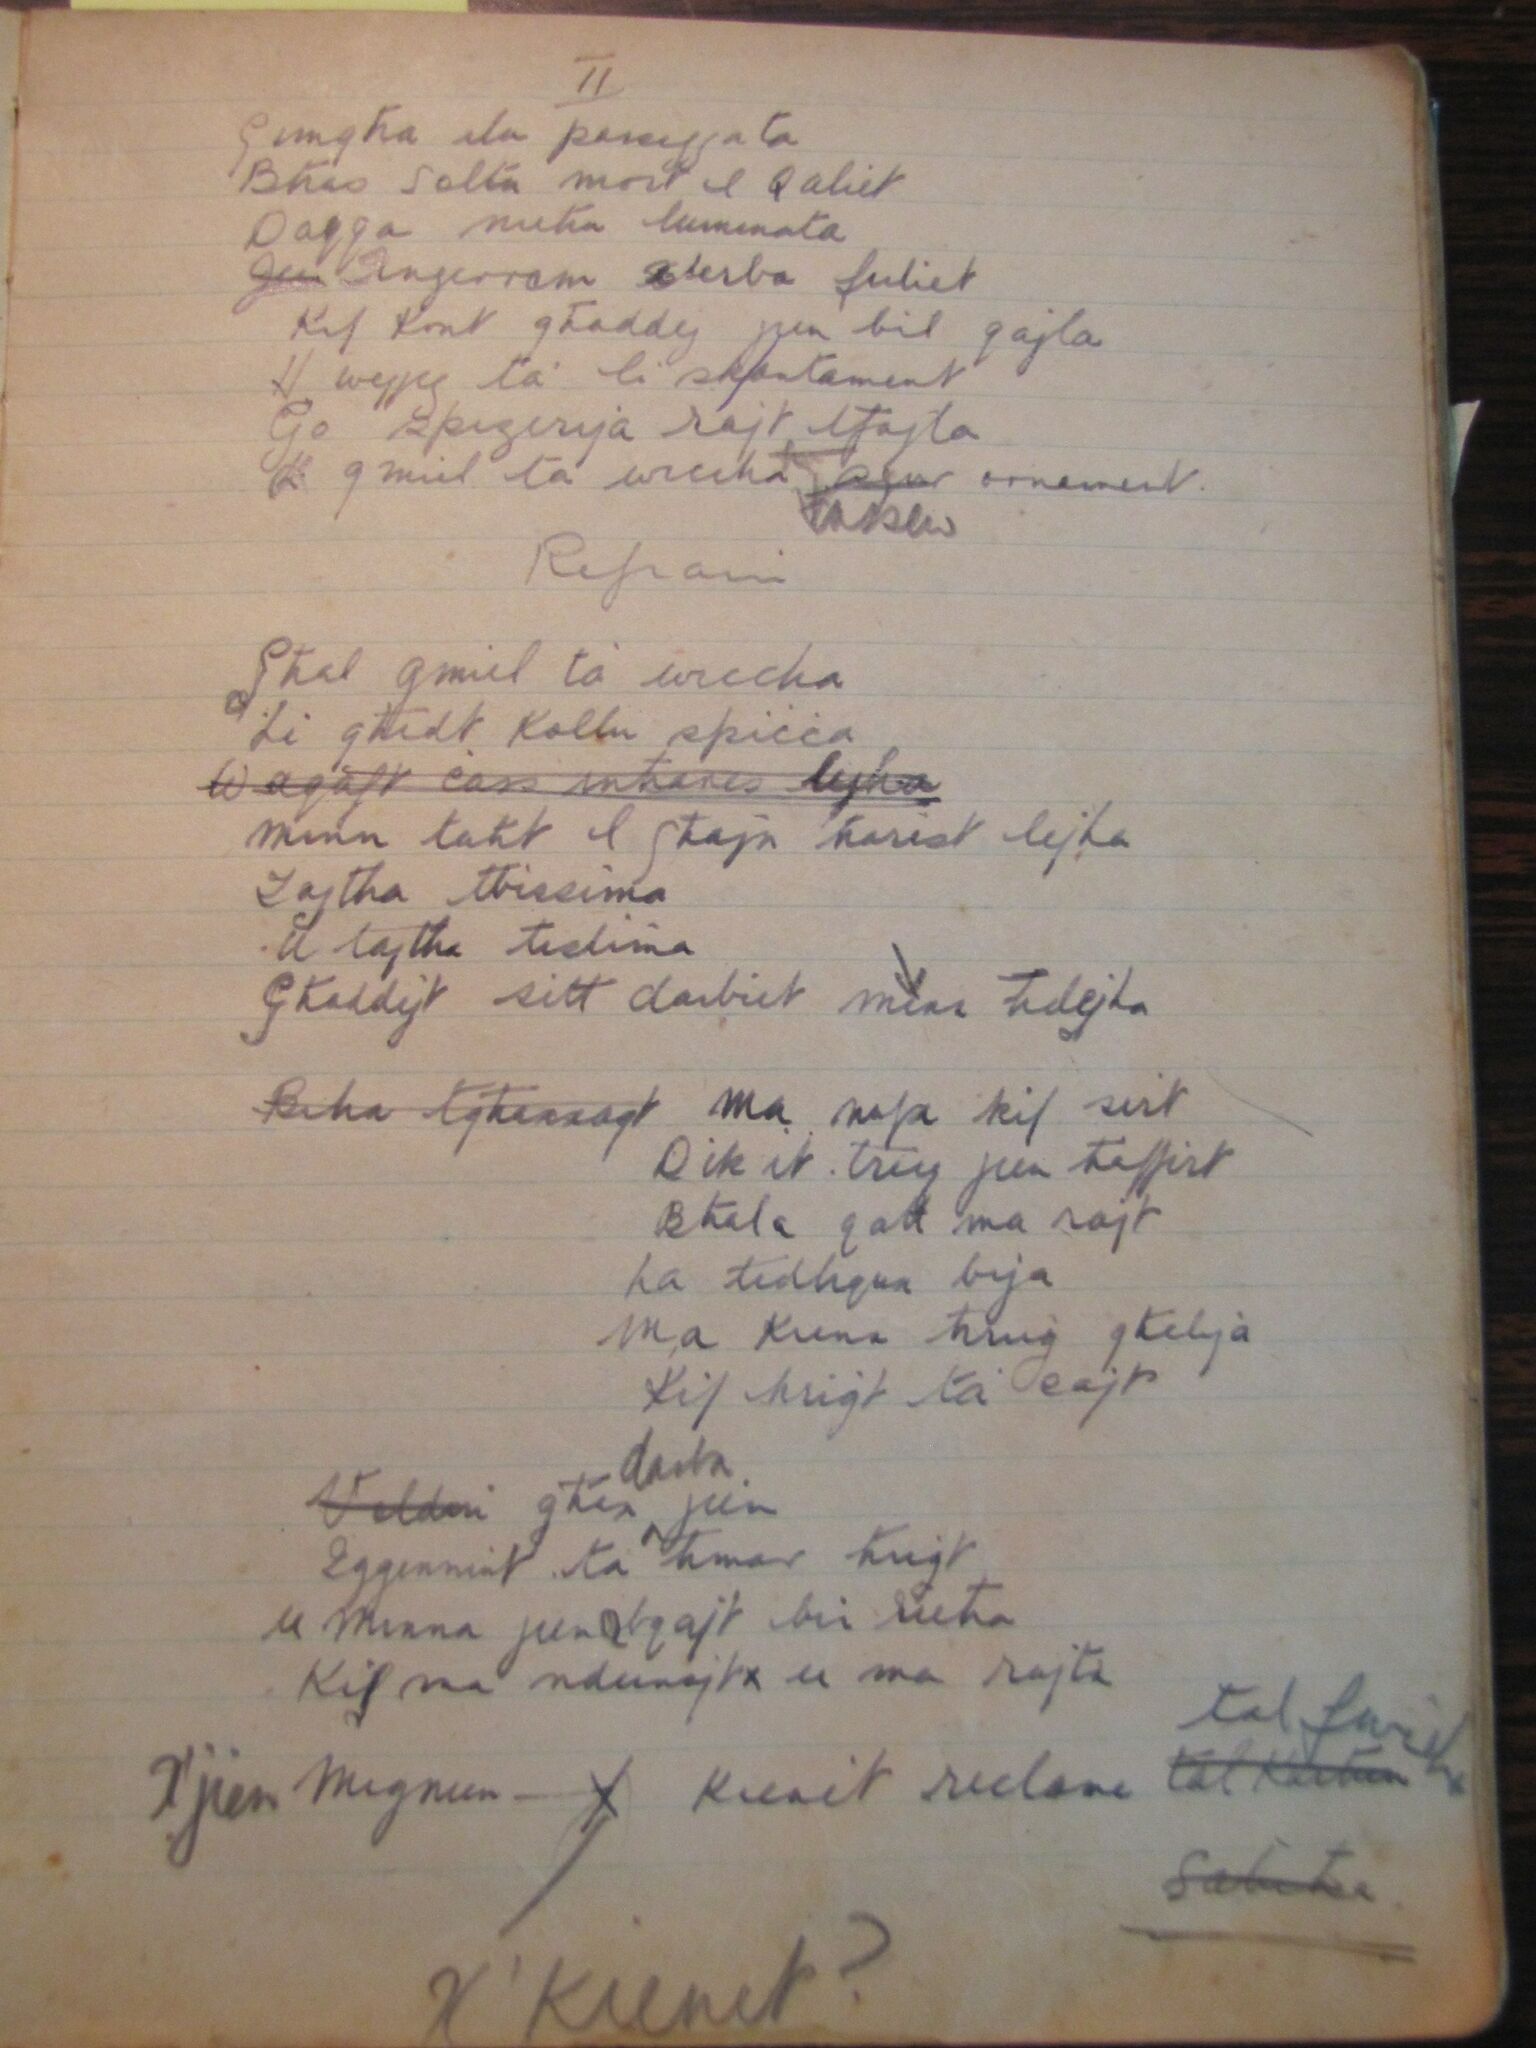 II
Gimgħa ilu passiggata
Bħas soltu mort il Qaliet
Daqqa nieħu luminata
Ingerrem xi erba fuliet
Kif kont għaddej jien bil qajla
H weġġ ta li skontament
Go spizerija rajt tfajla
Li gmiel ta wiccha ornament.
Refrain
Għal gmiel ta wiccha
Li għedt kollu spiċċa
W aqaft ċass inħares lejha
Minn taħt il għajn ħarist lejha
Zajtha tbissima
U tajtha tislima
Għaddejt sitt darbiet minn ħdejha
Beha tgħaxxaqt ma nafx kif sirt
Dik it triq jien ħaffirt
Bħala qatt ma rajt
ħa tidħqux bija
Ma kienx ħruġ għalija
Kif ħriġt ta cajt
darba
għax jien
Iggennint ta ħmar ħriġt
u Minna jien bqajt bir rieħa
Kif ma ndunajtx u ma rajtx
tal
X'jien Magnun - x Kienit reclame
X'Kienet?